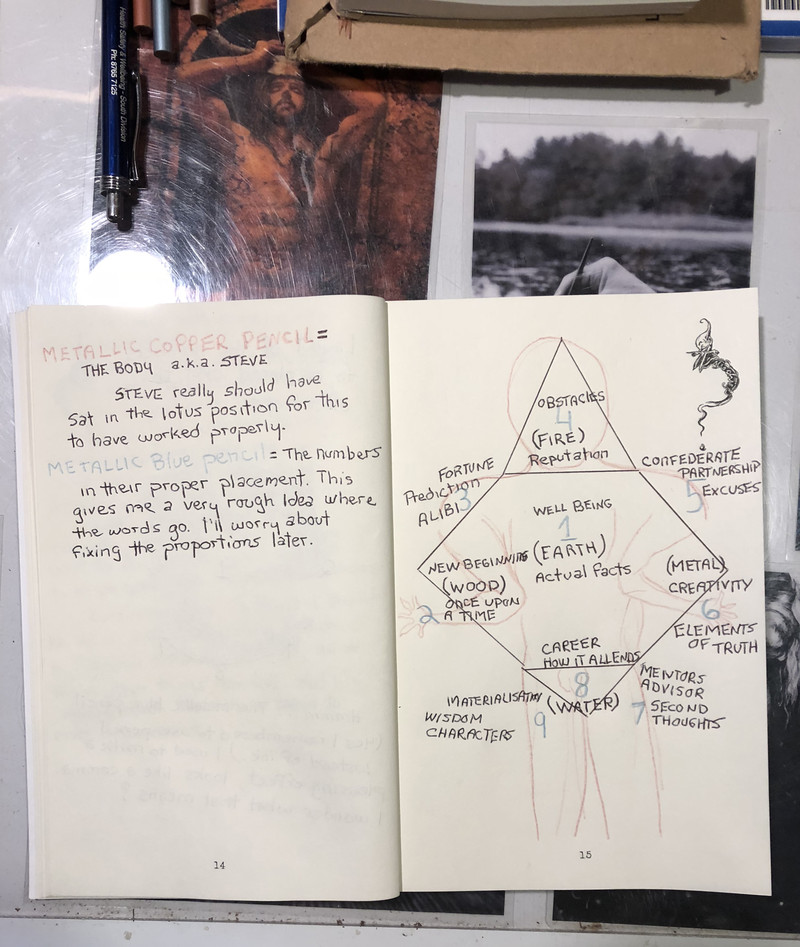 Health Safety & Wellbeing - South Division
Ph: 8765 7125
METALLIC COPPER PENCIL=
THE BODY a.k.a. STEVE
STEVE really should have
Sat in the lotus position for this
to have worked properly.
METALLIC Blue pencil = The numbers
in their proper placement. This
gives me a very rough Idea where
the words go. I'll worry about
fixing the proportions later.
14
OBSTACLES
4
(FIRE)
Reputation
FORTUNE
Prediction
3
ALIBI
CONFEDERATE
PARTNERSHIP
5
EXCUSES
WELL BEING
1
(EARTH)
Actual Facts
NEW BEGINNING
(WOOD)
ONCE UPON
2
A TIME
(METAL)
CREATIVITY
6
ELEMENTS
OF TRUTH
CAREER
HOW IT ALL ENDS
8
(WATER)
MENTORS
ADVISOR
7
SECOND
THOUGHTS
WISDOM
9
CHARACTERS
15